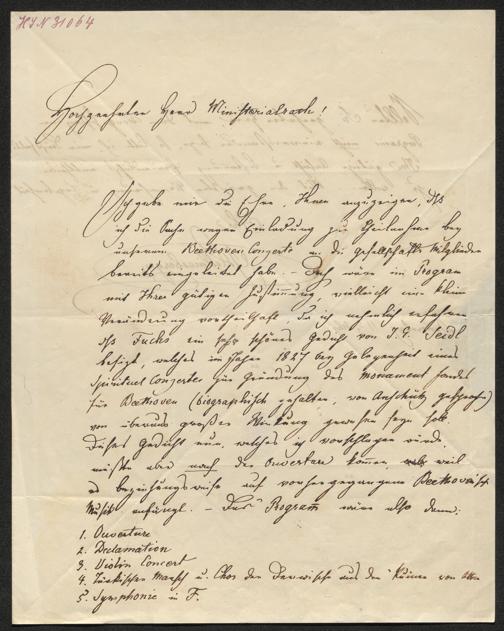 HIN 31064
Hochgeehrter Herr Ministerialrath!
Ich gebe mir die Ehre, Ihnen anzuzeigen, daß
ich die Sache wegen Einladung zur Theilnahme bey
unserem Beethoven Concerte an die Gesellschafts-Mitglieder
bereits eingeleitet habe. – Doch wäre im Program
mit Ihrer gütigen Zustimmung, vielleicht eine kleine
Veränderung vortheilhaft, da ich nehmlich erfahren
daß Fuchs ein sehr schönes Gedicht von J. G. Seidl
besitzt, welches im Jahre 1837 bey Gelegenheit eines
Spirituel Concertes zur Gründung des Monument fondes
für Beethoven (biographisch gehalten, von Anschütz gesprochen)
von überaus großer Wirkung gewesen seyn soll.
Dieses Gedicht nun, welches ich vorschlagen würde
müßte aber nach der Ouverture kommen, weil
es beziehungsweise auf vorhergegangene Beethovensche
Musik anfängt. – Das Program wäre also dann:
1. Ouverture
2. Declamation
3. Violin Concert
4. Türkischer Marsch u. Chor der Derwische aus den "Ruinen von Athen
5. Symphonie in F.